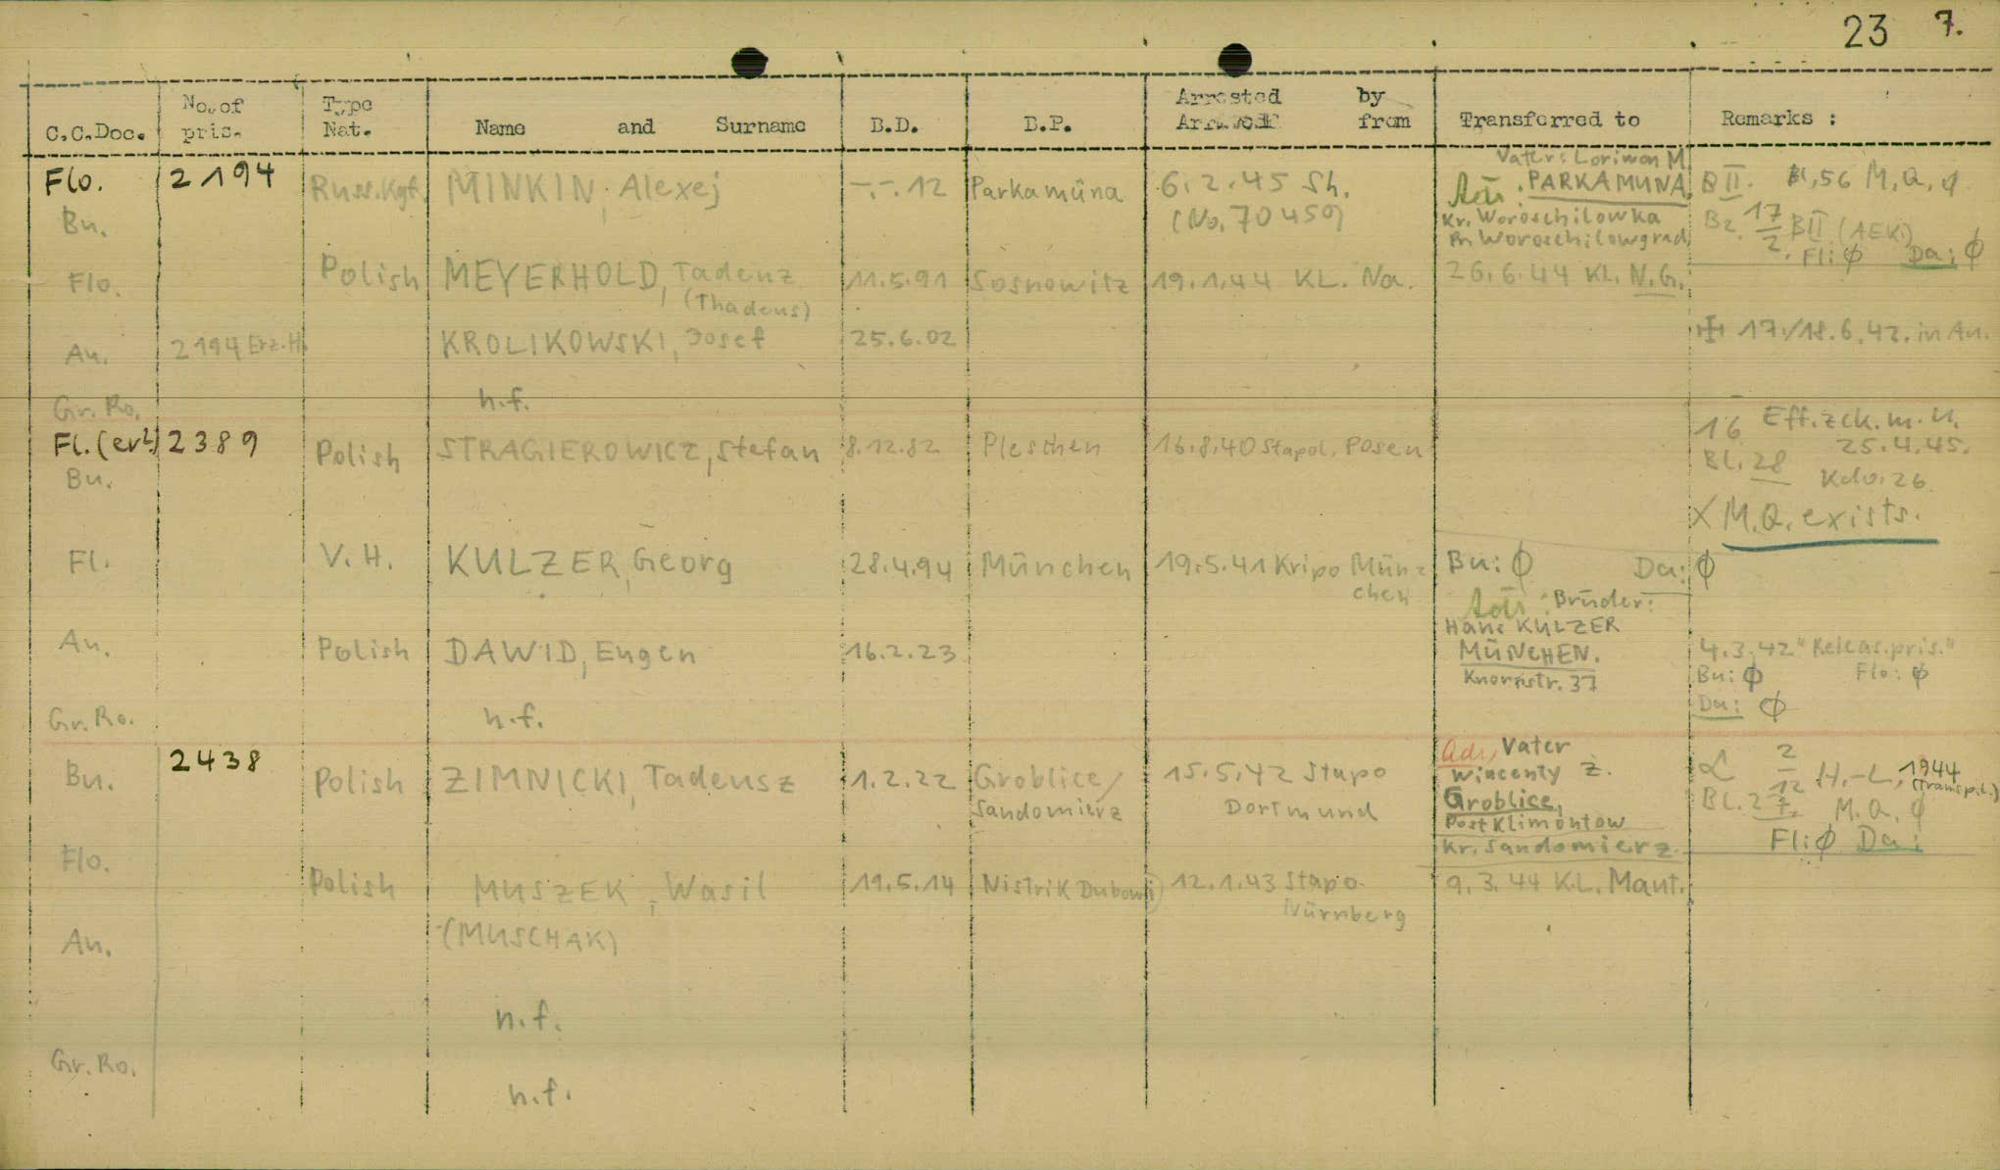 23 7.
C.C.Doc. No. of pris. Type Nat. Name and Surname B.D. B.P. Arrested by from Transferred to Remarks :
Flo. 2194 Russ.Kgf. MINKIN, Alexej -.-.12 Parkamüna 6.2.45 Sh. (No. 70459)
Vater: Loriwon M.
PARKAMUNA
Kr. Woroschilowka
Woroschilowgrad
B II. Bl, 56 M.Q. ∅
Bz. 17/2. B II (AEK)
Fl: ∅ Da: ∅
Bu. Polish MEYERHOLD, Tadenz (Thadeus) 11.5.91 Sosnowitz 19.1.44 KL. Na. 26.6.44 KL. N.G.
Flo.
Au. 2194 Erz.H. KROLIKOWSKI, Josef 25.6.02 17./18.6.42. in Au.
Gr. Ro. n.f.
Fl. 2389 Polish STRAGIEROWICZ, Stefan 8.12.82 Pleschen 16.8.40 Stapol. Posen
16 Eff.zck.m.U.
25.4.45.
Bl. 28 Kdo. 26
X M.Q. exists.
Bu.
Fl. V.H. KULZER, Georg 28.4.94 München 19.5.41 Kripo München Bu: ∅ Da: ∅
Brüder:
Hans KULZER
MÜNCHEN.
Knorrstr. 37
Au. Polish DAWID, Eugen 16.2.23 4.3.42 "Releas.pris."
Bu: ∅ Flo: ∅
Da: ∅
Gr. Ro. n.f.
Bu. 2438 Polish ZIMNICKI, Tadeusz 1.2.22 Groblice/ Sandomierz 15.5.42 Stapo Dortmund
Adr, Vater
Wincenty Z.
Groblice,
Post Klimontow
Kr. Sandomierz
2/12 H.-L, 1944
Bl. 2 M.Q. ∅
Fl: ∅ Da:
Flo. Polish MUSZEK, Wasil 19.5.14 Nistrik Dubowi 12.1.43 Stapo Nürnberg 9.3.44 K.L. Maut.
(MUSCHAK)
Au.
n.f.
Gr. Ro.
n.f.